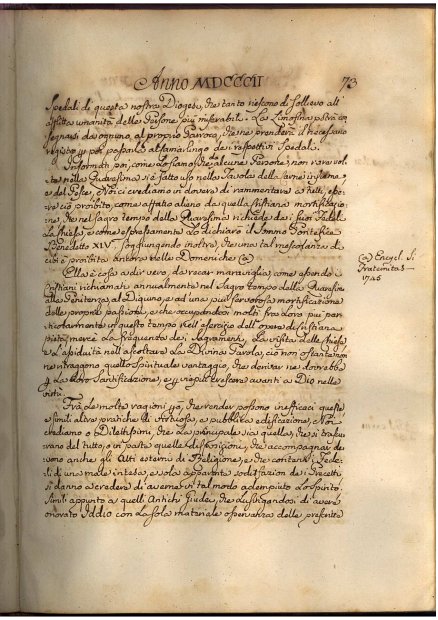 Anno MDCCCII
73
Spedali di questa nostra Diogesi, che tanto riescono di sollievo all'
afflitta umanità delle Persone più miserabili. La Limosina potrà con
segnarsi da ognuno al proprio Parroco, che ne prenderà il necessario
registo per poi passarla alla mani de' rispettivi Spedali.
Informati poi, come lo siamo, che da alcune Persone, non rare vol
te nella Quaresima si è fatto uso nella Tavola della carne insieme,
e del Pesce, Noi ci crediamo in dovere di rammentare a tutti, esse
re ciò proibito, come affatto alieno da quella Cristiana mortificazio
ne, che nel sagro tempo della Quaresima richiede da' suoi Fedeli
la Chiesa, e come espressamente lo dichiarò il Sommo Pontefice
Benedetto XIV. soggiungendo inoltre, che una tal mescolanza di
cibi è proibita ancora nelle Domeniche (a)
(a) Encycl. Si
Fraternitas
1745
Ella è cosa a dir vero, da recar maraviglia, come essendo i
Cristiani richiamati annualmente nel Sagro tempo della Quaresima
alla Penitenza, al Digiuno, e ad una più fervorosa mortificazione
delle proprie passioni, e che occupandosi molti fra loro più par
ticolarmente in questo tempo nell'esercizio dell'opere di Cristiana
pietà, mercè la frequenza de' Sagramenti, la visita delle Chiese
e l'assiduità nell'ascoltare la Divina Parola, ciò non ostante non
ne ritragano quello spirituale vantaggio, che derivar ne dovrebbe
per la loro Santificazione, e per vieppiù crescere avanti a Dio nelle
virtù.
Frà le molte ragioni però, che render possono inefficaci queste
e simili altre pratiche di pietà, e pubblica edificazione, Noi
crediamo o Dilettissimi, che la principale sia quella, che si trascu
rano del tutto, o in parte quelle disposizioni, che accompagnar de
vono anche gli Atti esterni di Religione, e che contenti i Fede
li di una male intesa, e sola apparente sodisfazione de' Precetti
si danno a credere di averne in tal modo adempiuto lo spirito.
Simili appunto a quelli Antichi Giudei, che lusingandosi di avere
onorato Iddio con la sola materiale osservanza delle prescritte